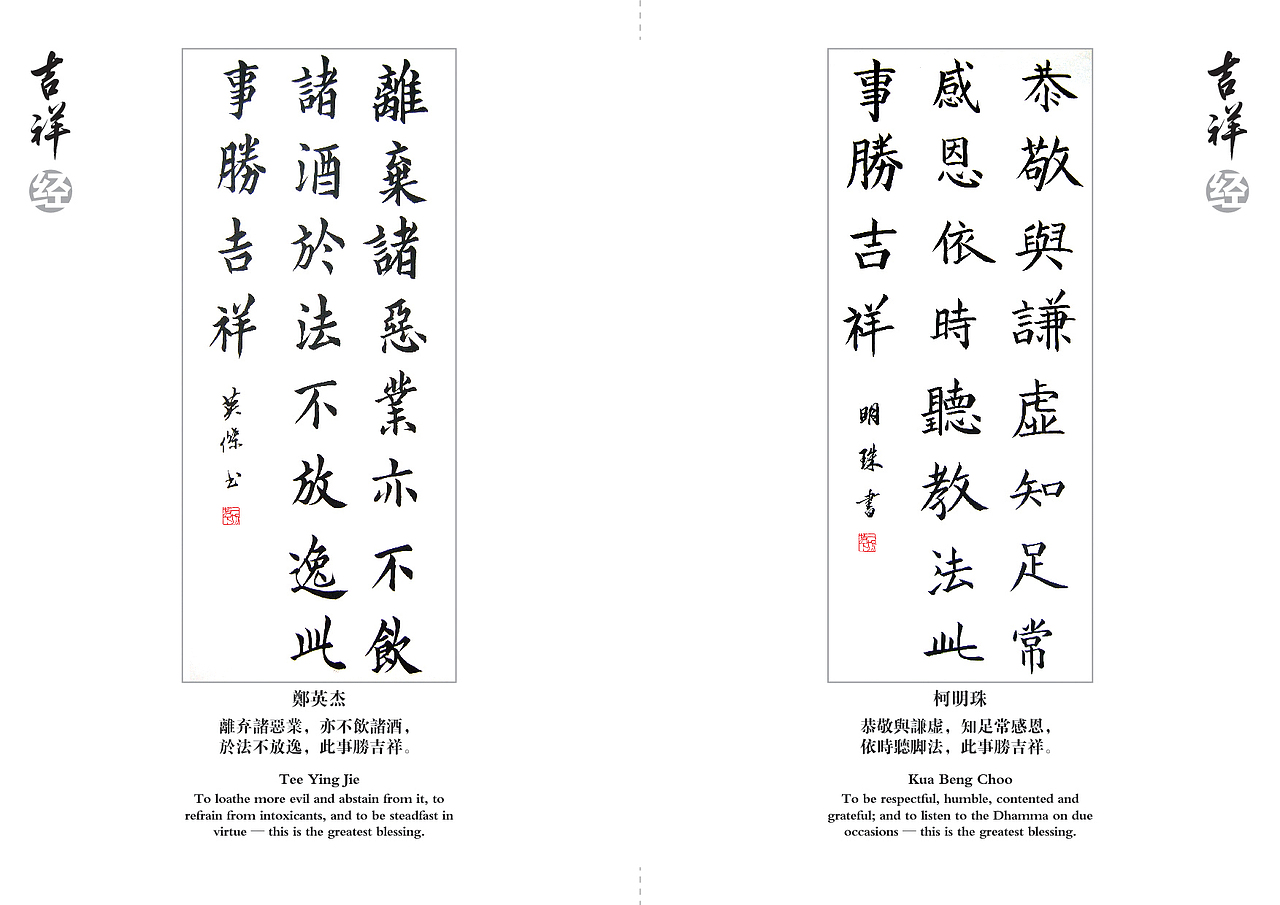 吉祥
经
離棄諸惡業亦不飲
諸酒於法不放逸此
事勝吉祥
英傑书
鄭英杰
離弃諸惡業，亦不飲諸酒，
於法不放逸，此事勝吉祥。
Tee Ying Jie
To loathe more evil and abstain from it, to
refrain from intoxicants, and to be steadfast in
virtue — this is the greatest blessing.
恭敬與謙虛知足常
感恩依時聽教法此
事勝吉祥
明珠書
柯明珠
恭敬與謙虛，知足常感恩，
依時聽脚法，此事勝吉祥。
Kua Beng Choo
To be respectful, humble, contented and
grateful; and to listen to the Dhamma on due
occasions — this is the greatest blessing.
吉祥
经